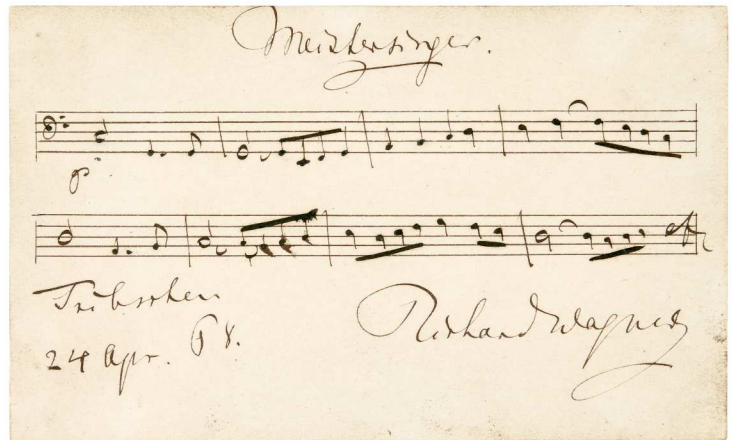 Meistersinger.
p.
Tribschen
24 Apr. 68.
Richard Wagner